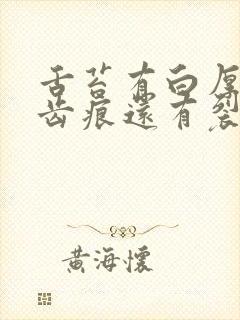 舌苔有白厚
齿痕还有裂
黄海怀